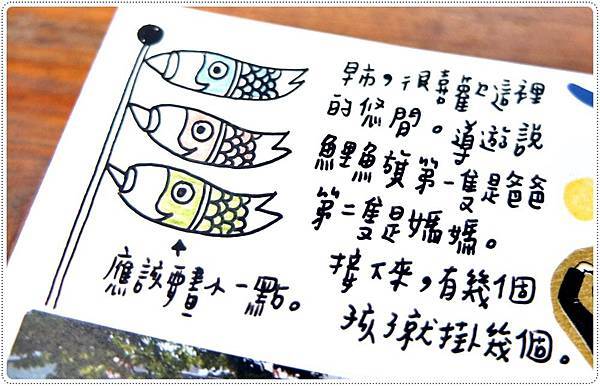 早市，很喜歡這裡
的悠閒。導遊說
鯉魚旗第一隻是爸爸
第二隻是媽媽。
接下來，有幾個
孩子就掛幾個。
應該畫小一點。